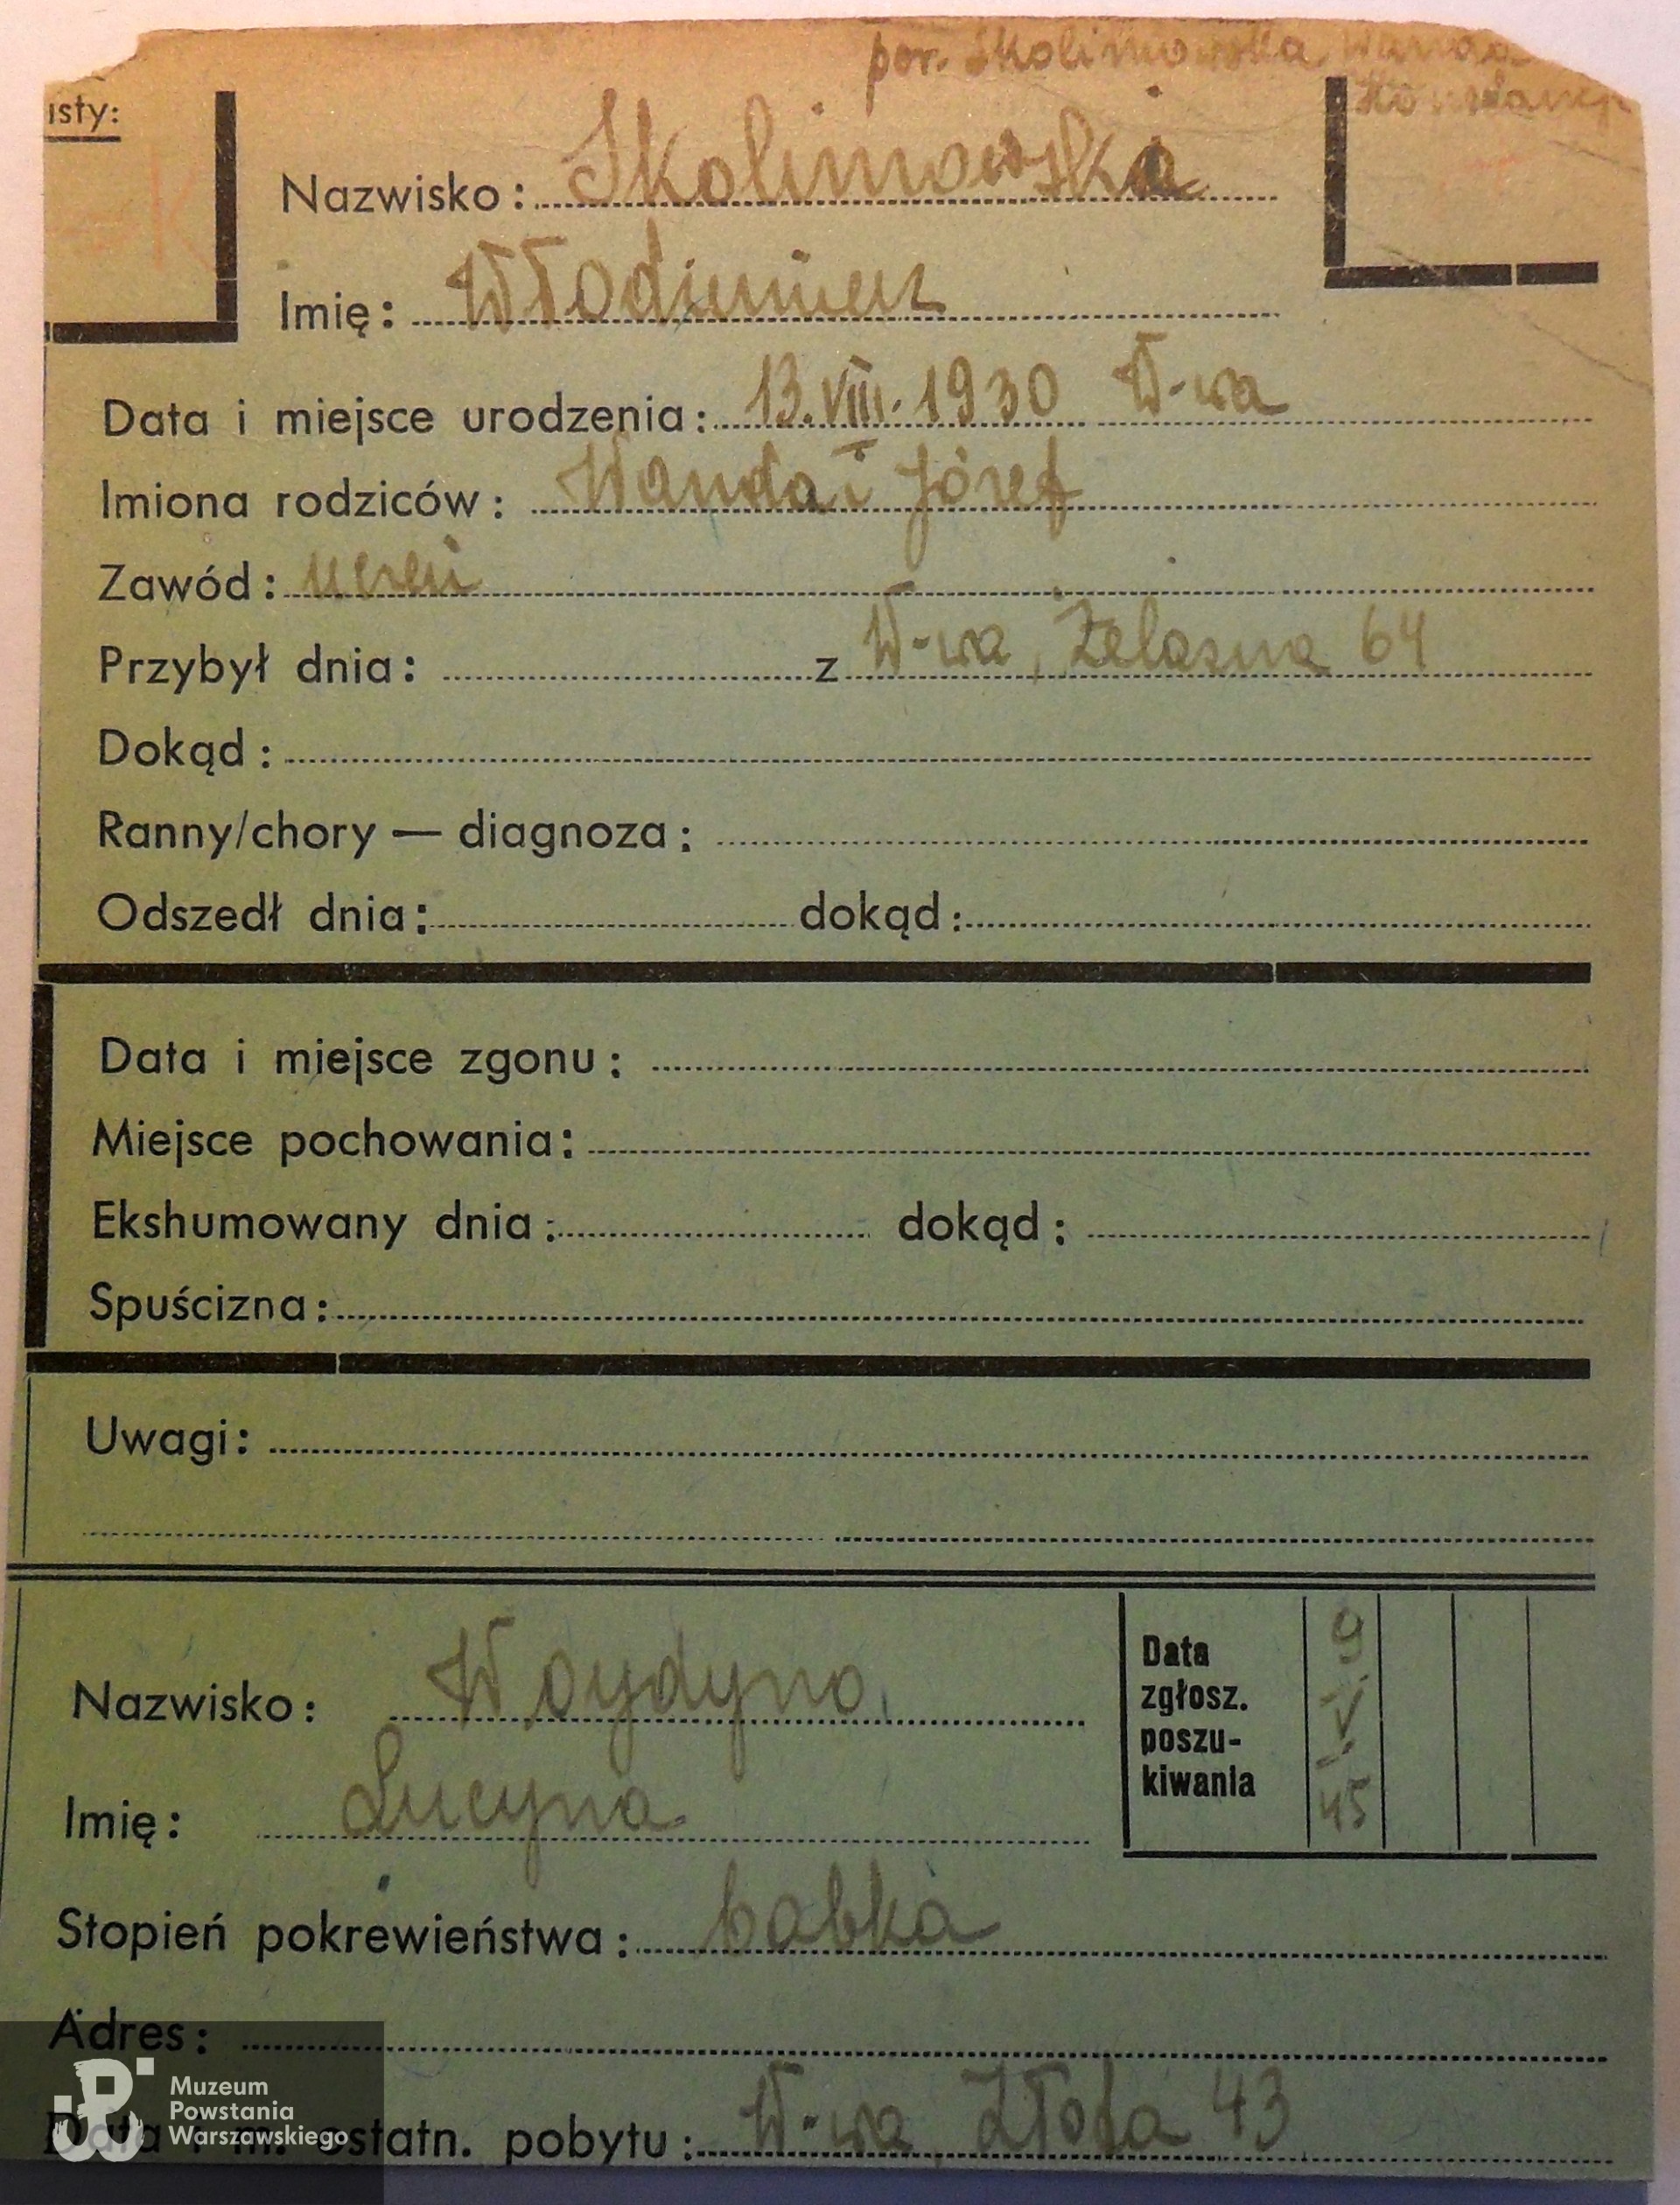 por. Skolimowska Wanda
isty:
Nazwisko: Skolimowski
Imię: Włodzimierz
Data i miejsce urodzenia: 13.VIII.1930 W-wa
Imiona rodziców: Wanda i Józef
Zawód: uczeń
Przybył dnia: z W-wa, Żelazna 64
Dokąd:
Ranny/chory — diagnoza:
Odszedł dnia: dokąd:
Data i miejsce zgonu:
Miejsce pochowania:
Ekshumowany dnia: dokąd:
Spuścizna:
Uwagi:
Nazwisko: Woydyno
Imię: Lucyna
Data zgłosz. poszu-
kiwania
9
V
45
Stopień pokrewieństwa: babka
Adres:
Data i m. ostatn. pobytu: W-wa Złota 43
Muzeum
Powstania
Warszawskiego